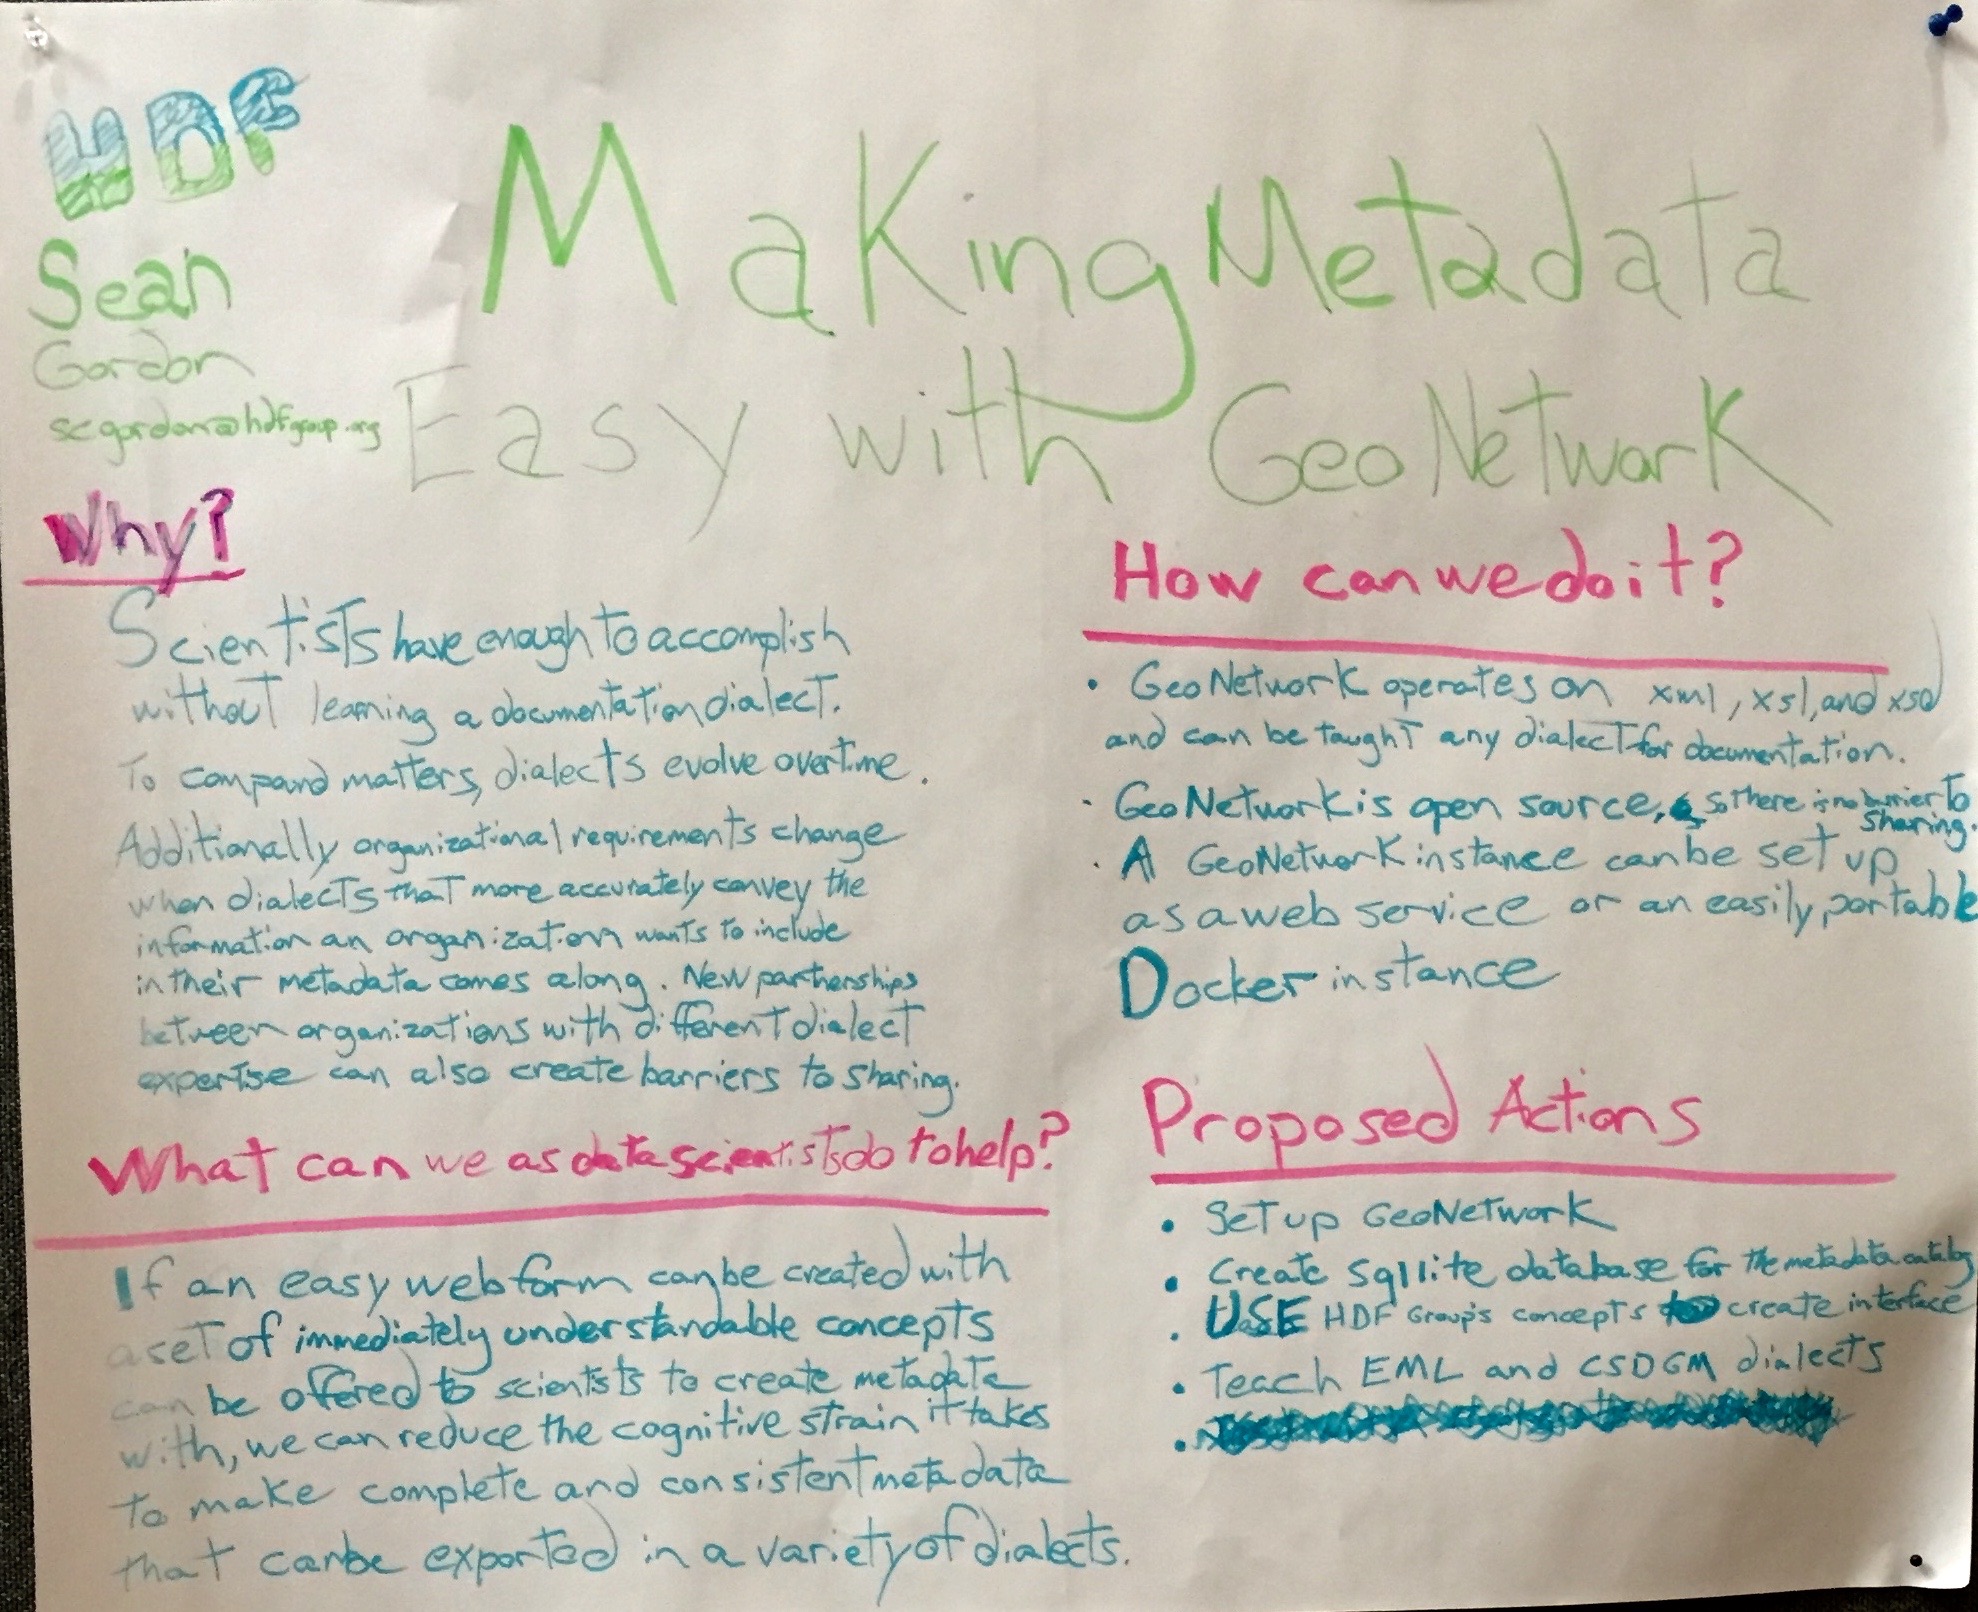 HDF
Sean
Gordon
scgordon@hdfgroup.org
Making Metadata
Easy with GeoNetwork
Why?
Scientists have enough to accomplish
without learning a documentation dialect.
To compound matters, dialects evolve overtime.
Additionally organizational requirements change
when dialects that more accurately convey the
information an organization wants to include
in their metadata comes along. New partnerships
between organizations with different dialect
expertise can also create barriers to sharing.
What can we as data scientists do to help?
If an easy web form can be created with
a set of immediately understandable concepts
can be offered to scientists to create metadata
with, we can reduce the cognitive strain it takes
to make complete and consistent metadata
that can be exported in a variety of dialects.
How can we do it?
• GeoNetwork operates on xml, xsl, and xsd
and can be taught any dialect for documentation.
• GeoNetwork is open source, so there is no barrier to
sharing.
• A GeoNetwork instance can be set up
as a web service or an easily portable
Docker instance
Proposed Actions
• Set up GeoNetwork
• Create sqllite database for the metadata catalog
• USE HDF Group's concepts to create interface
• Teach EML and CSDGM dialects
•